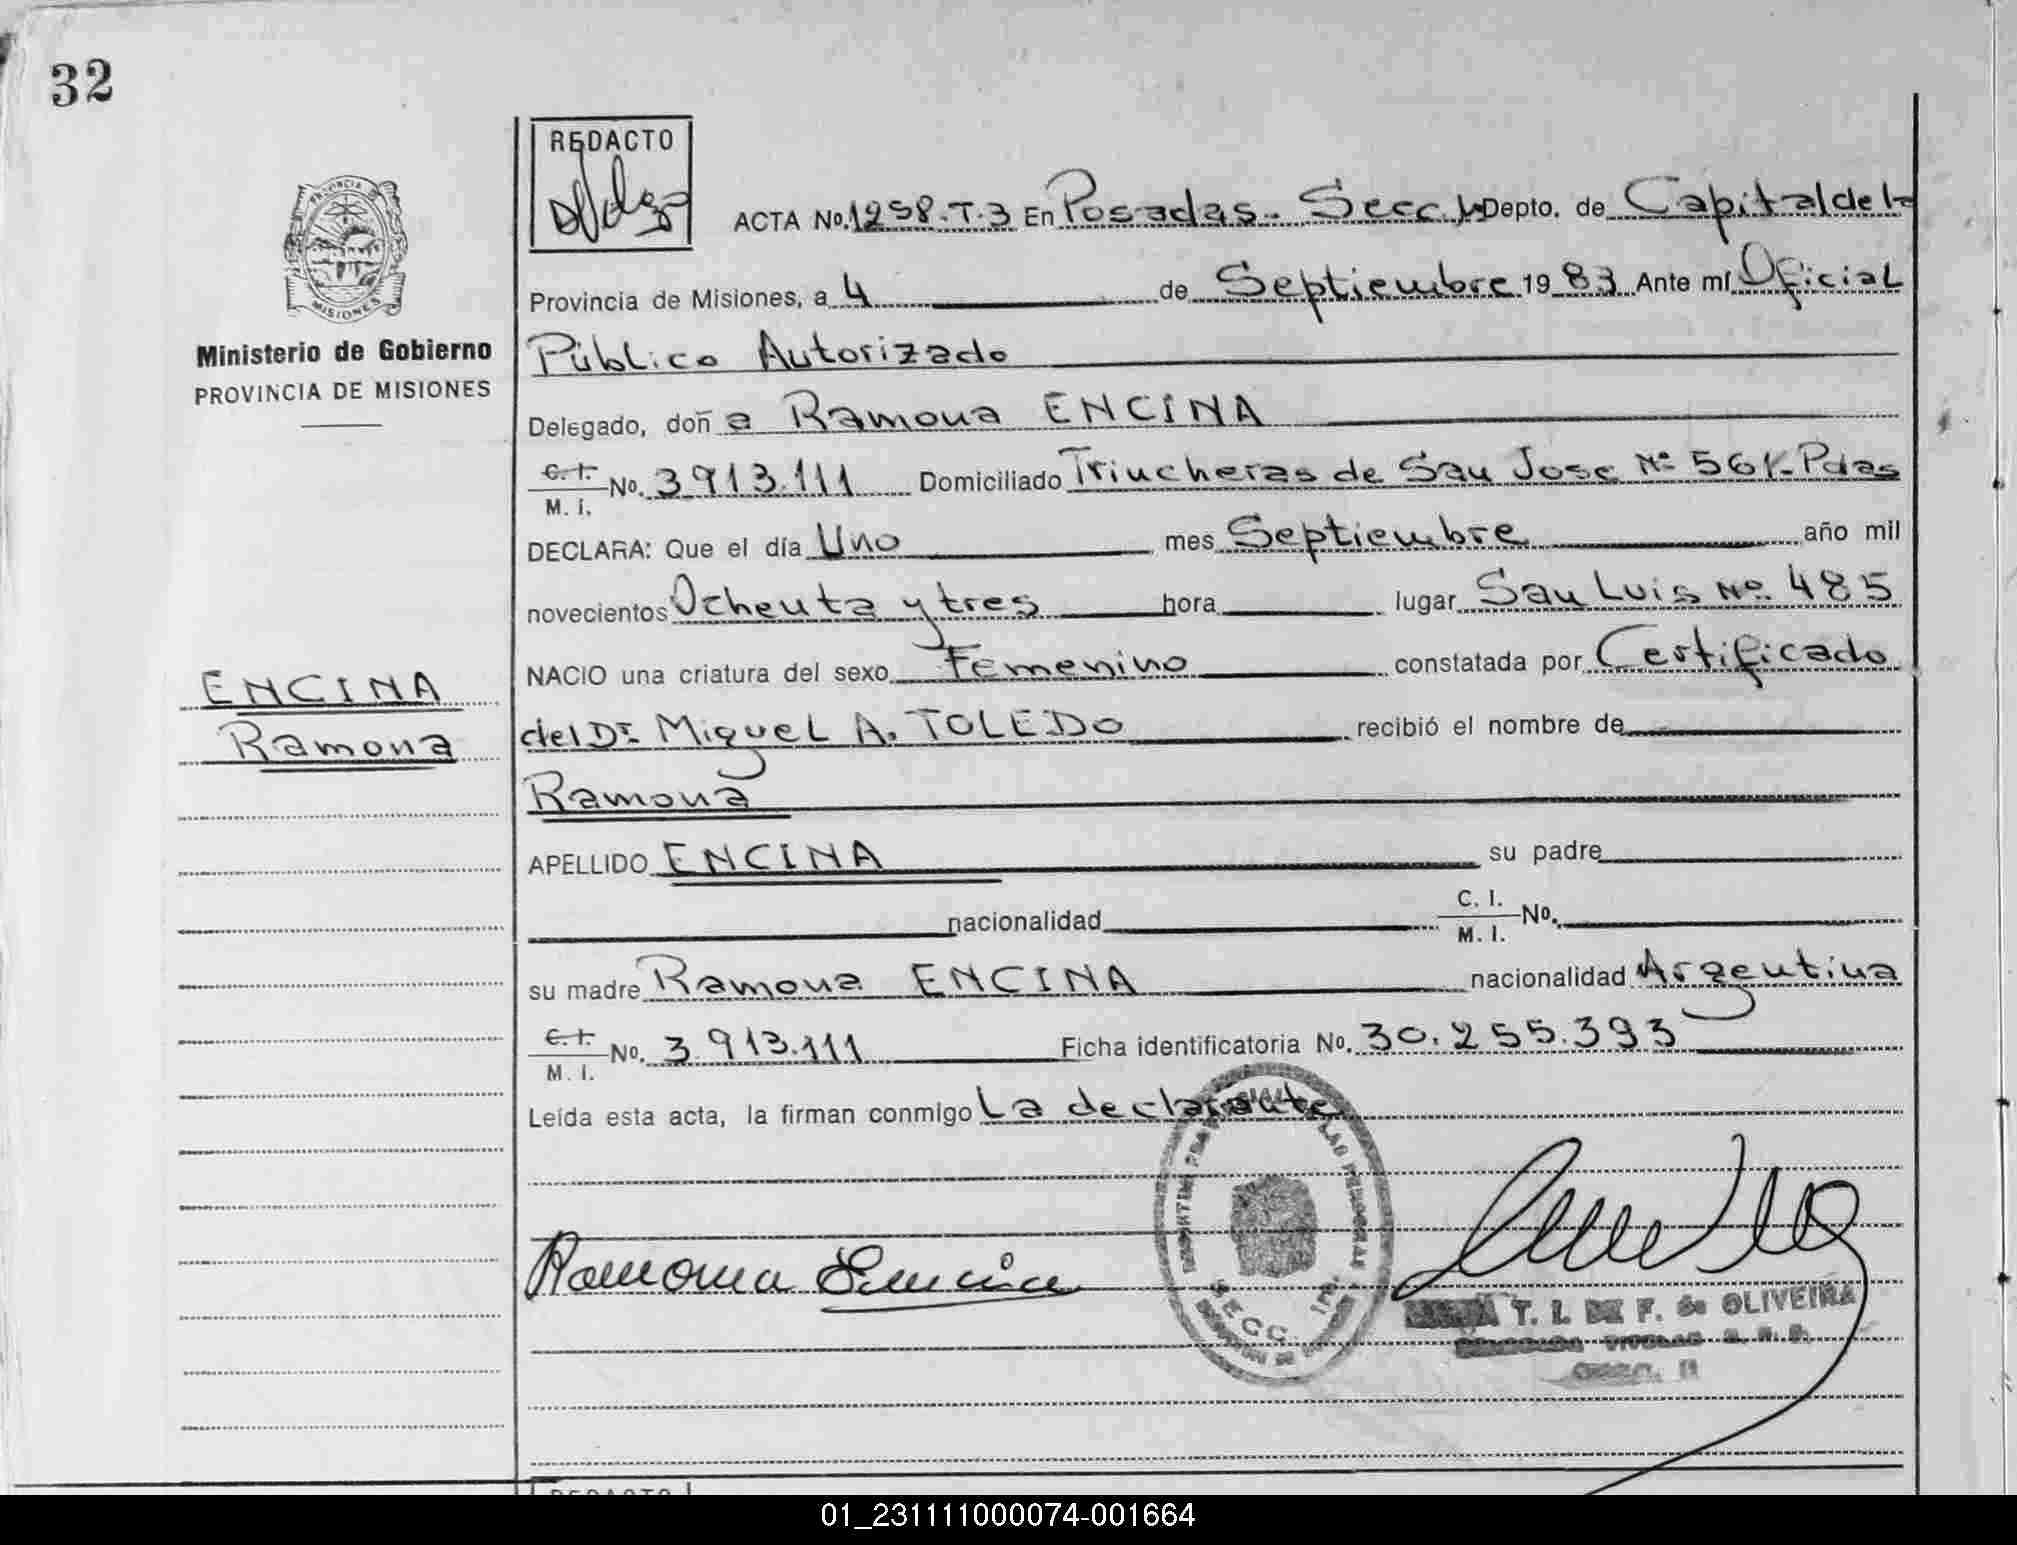 32
REDACTO
ACTA No. 1258-T-3 En Posadas. Secc. Depto. de Capital de la
Provincia de Misiones, a 4 de Septiembre 1983 Ante mí Oficial
Ministerio de Gobierno
PROVINCIA DE MISIONES
Público Autorizado
Delegado, doña Ramona ENCINA
C. I. M. I. No. 3.913.111 Domiciliado Trincheras de San Jose Nº 561-Pdas
DECLARA: Que el día Uno mes Septiembre año mil
novecientos Ochenta y tres hora lugar San Luis No. 485
NACIO una criatura del sexo Femenino constatada por Certificado
ENCINA
Ramona
del Dr. Miguel A. TOLEDO recibió el nombre de
Ramona
APELLIDO ENCINA su padre
nacionalidad C. I. M. I. No.
su madre Ramona ENCINA nacionalidad Argentina
C. I. M. I. No. 3.913.111 Ficha identificatoria No. 30.255.393
Leída esta acta, la firman conmigo La declarante
Ramona Encina
SECC.
T. I. DE F. de OLIVEIRA
REDACTO
01_231111000074-001664